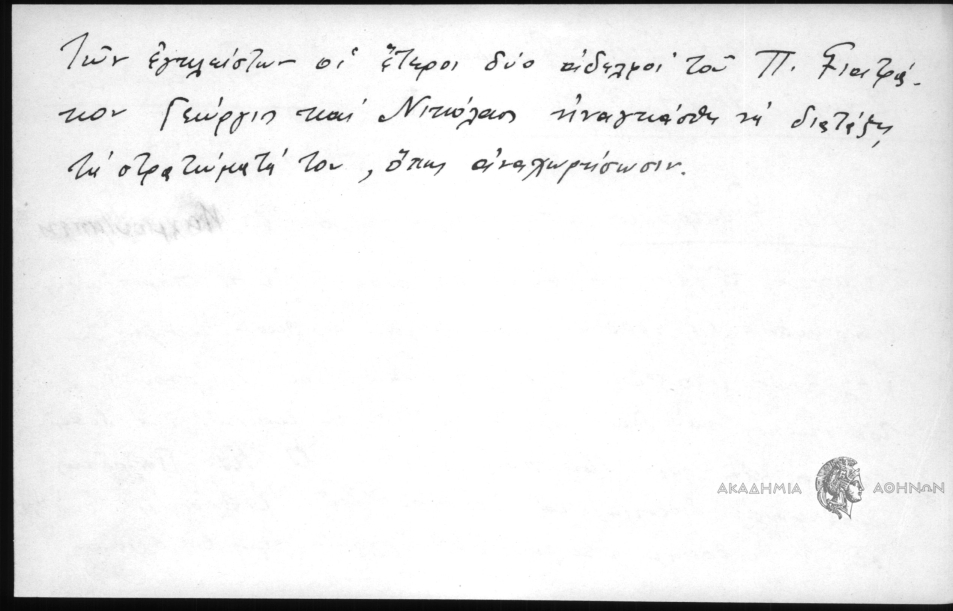 τῶν ἐγκλείστων οἱ ἕτεροι δύο ἀδελφοὶ τοῦ Π. Γιατρά-
κου Γεώργιος καὶ Νικόλαος ἠναγκάσθη νὰ διατάξῃ
τὰ στρατεύματά του, ὅπως ἀναχωρήσωσιν.
ΑΚΑΔΗΜΙΑ ΑΘΗΝΩΝ